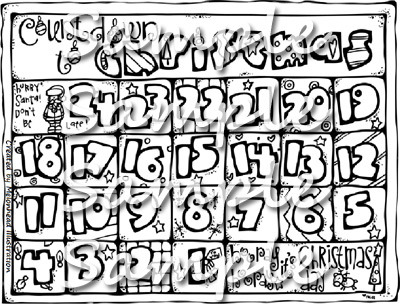 Countdown
to Christmas
Hurry Santa! Don't Be Late!
24 23 22 21 20 19
18 17 16 15 14 13 12
11 10 9 8 7 6 5
4 3 2 1
Christmas
day
Created by Melonhead Illustration
Sample
Sample
Sample
Sample